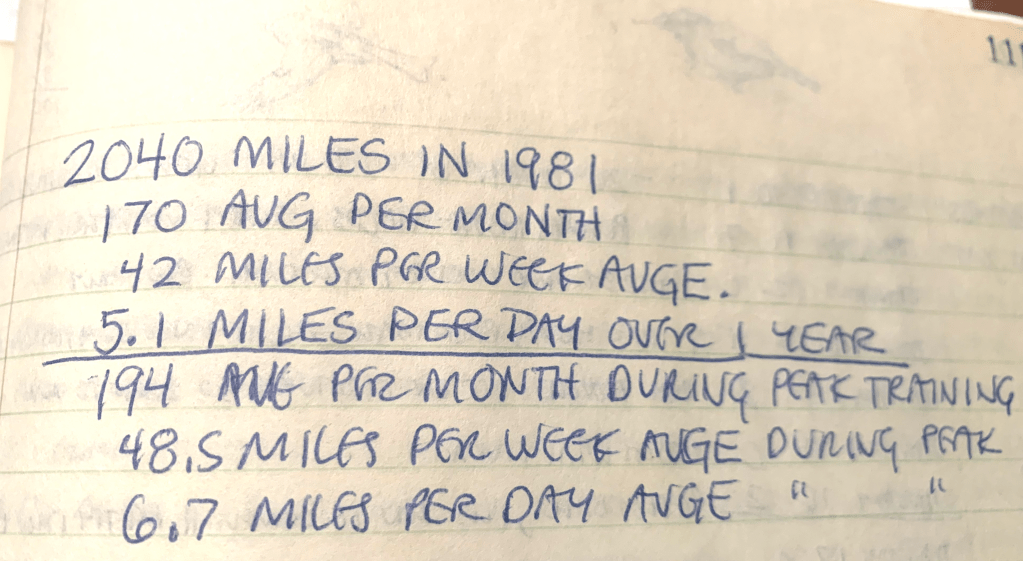 11
2040 MILES IN 1981
170 AVG PER MONTH
42 MILES PER WEEK AVGE.
5.1 MILES PER DAY OVER 1 YEAR
194 AVG PER MONTH DURING PEAK TRAINING
48.5 MILES PER WEEK AVGE DURING PEAK
6.7 MILES PER DAY AVGE " "